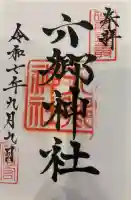 奉拝
六郷神社
令和六年九月九日